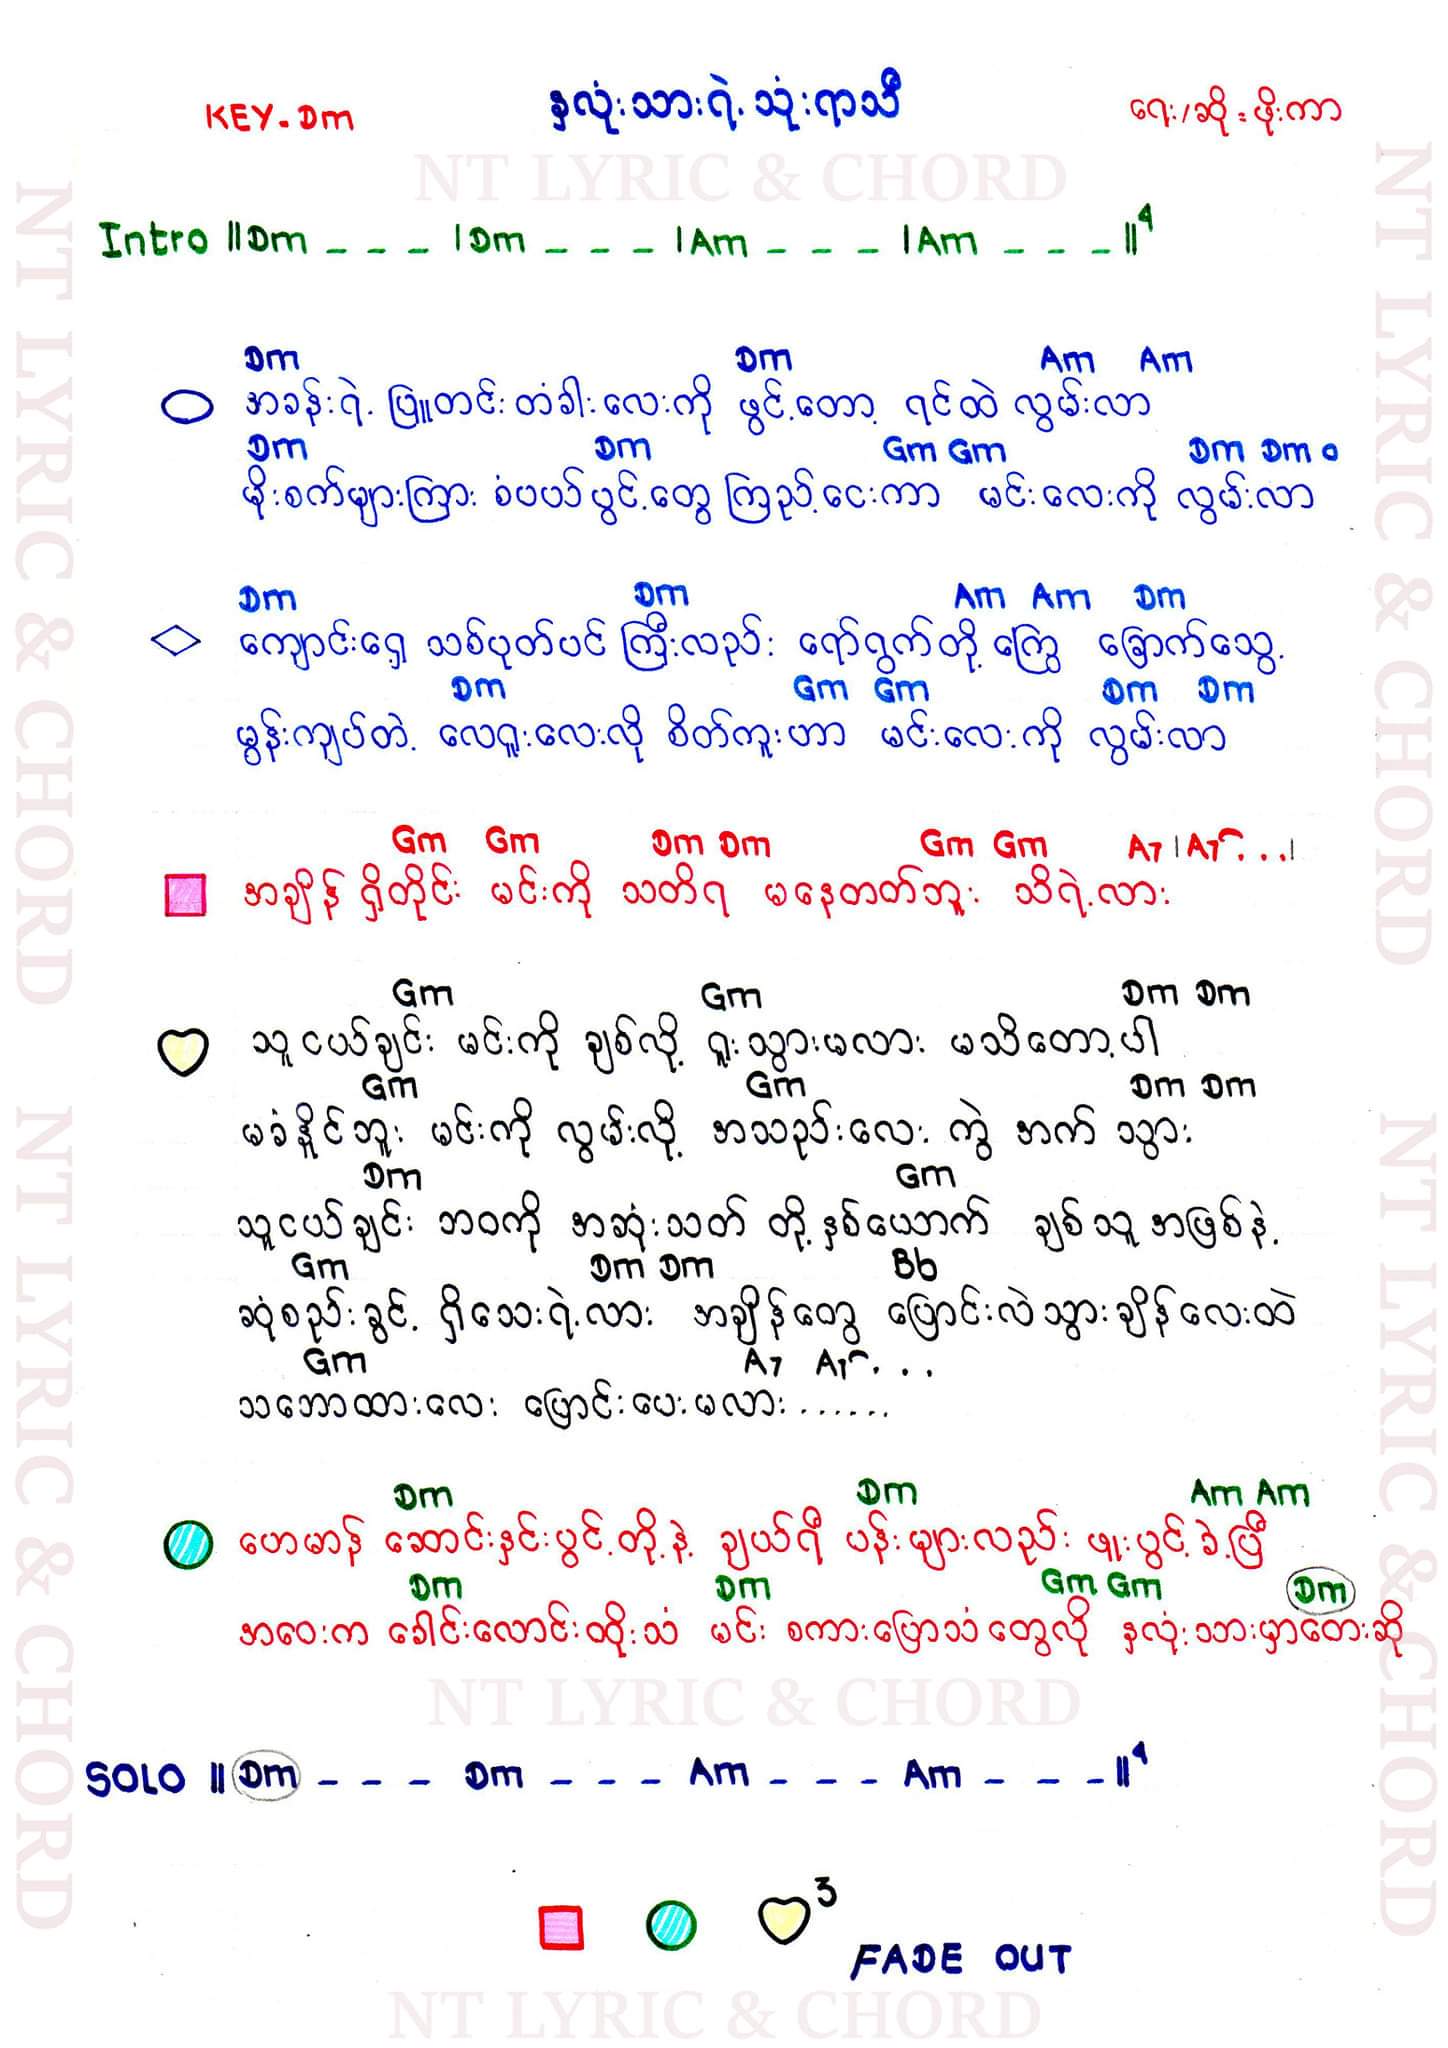 KEY. Dm
နှလုံးသားရဲ့သုံးရာသီ
ရေး/ဆို = ဖိုးကာ
NT LYRIC & CHORD
Intro ||Dm _ _ _ |Dm _ _ _ |Am _ _ _ |Am _ _ _ ||4
Dm Dm Am Am
အခန်းရဲ့ ပြူတင်းတံခါးလေးကို ဖွင့်တော့ ရင်ထဲ လွမ်းလာ
Dm Dm Gm Gm Dm Dm o
မိုးစက်များကြား စံပယ်ပွင့်တွေ ကြည့်ငေးကာ မင်းလေးကို လွမ်းလာ
Dm Dm Am Am Dm
ကျောင်းရှေ့ သစ်ပုတ်ပင် ကြီးလည်း ရော်ရွက်တို့ ကြွေ ခြောက်သွေ့
Dm Gm Gm Dm Dm
မွန်းကျပ်တဲ့ လေရူးလေးလို စိတ်ကူးဟာ မင်းလေးကို လွမ်းလာ
Gm Gm Dm Dm Gm Gm A7 |A7 . . .|
အချိန် ရှိတိုင်း မင်းကို သတိရ မနေတတ်ဘူး သိရဲ့လား
Gm Gm Dm Dm
သူငယ်ချင်း မင်းကို ချစ်လို့ ရူးသွားမလား မသိတော့ပါ
Gm Gm Dm Dm
မခံနိုင်ဘူး မင်းကို လွမ်းလို့ အသည်းလေး ကွဲ အက် သွား
Dm Gm
သူငယ်ချင်း ဘဝကို အဆုံးသတ် တို့နှစ်ယောက် ချစ်သူအဖြစ်နဲ့
Gm Dm Dm Bb
ဆုံစည်းခွင့် ရှိသေးရဲ့လား အချိန်တွေ ပြောင်းလဲသွားချိန်လေးထဲ
Gm A7 A7 . . .
သဘောထားလေး ပြောင်းပေးမလား.......
Dm Dm Am Am
ဟေမာန် ဆောင်းနှင်းပွင့်တို့နဲ့ ချယ်ရီ ပန်းများလည်း ဖူးပွင့်ခဲ့ပြီ
Dm Dm Gm Gm Dm
အဝေးက ခေါင်းလောင်းထိုးသံ မင်း စကားပြောသံတွေလို နှလုံးသားမှာတေးဆို
NT LYRIC & CHORD
SOLO ||Dm _ _ _ Dm _ _ _ Am _ _ _ Am _ _ _||4
3
FADE OUT
NT LYRIC & CHORD
NT LYRIC & CHORD
NT LYRIC & CHORD
NT LYRIC & CHORD
NT LYRIC & CHORD